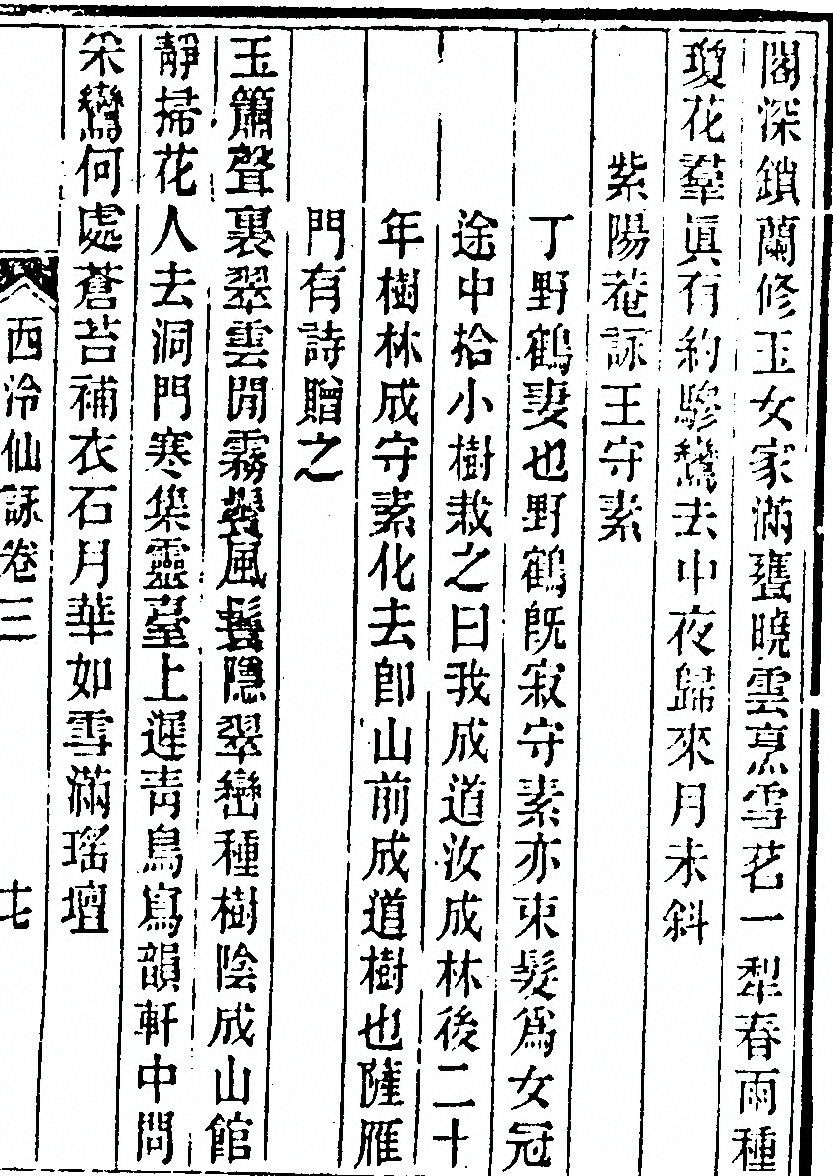 閣深鎖蘭修玉女家滿甕曉雲烹雪茗一犁春雨種
瓊花羣眞有約驂鸞去中夜歸來月未斜
紫陽菴詠王守素
丁野鶴妻也野鶴旣寂守素亦束髮爲女冠
途中拾小樹栽之曰我成道汝成林後二十
年樹林成守素化去卽山前成道樹也薩雁
門有詩贈之
玉簫聲裏翠雲閒霧鬢風鬟隱翠巒種樹陰成山館
靜掃花人去洞門寒集靈臺上遲靑鳥寫韻軒中問
采鸞何處蒼苔補衣石月華如雪滿瑤壇
西泠仙詠卷三
十七